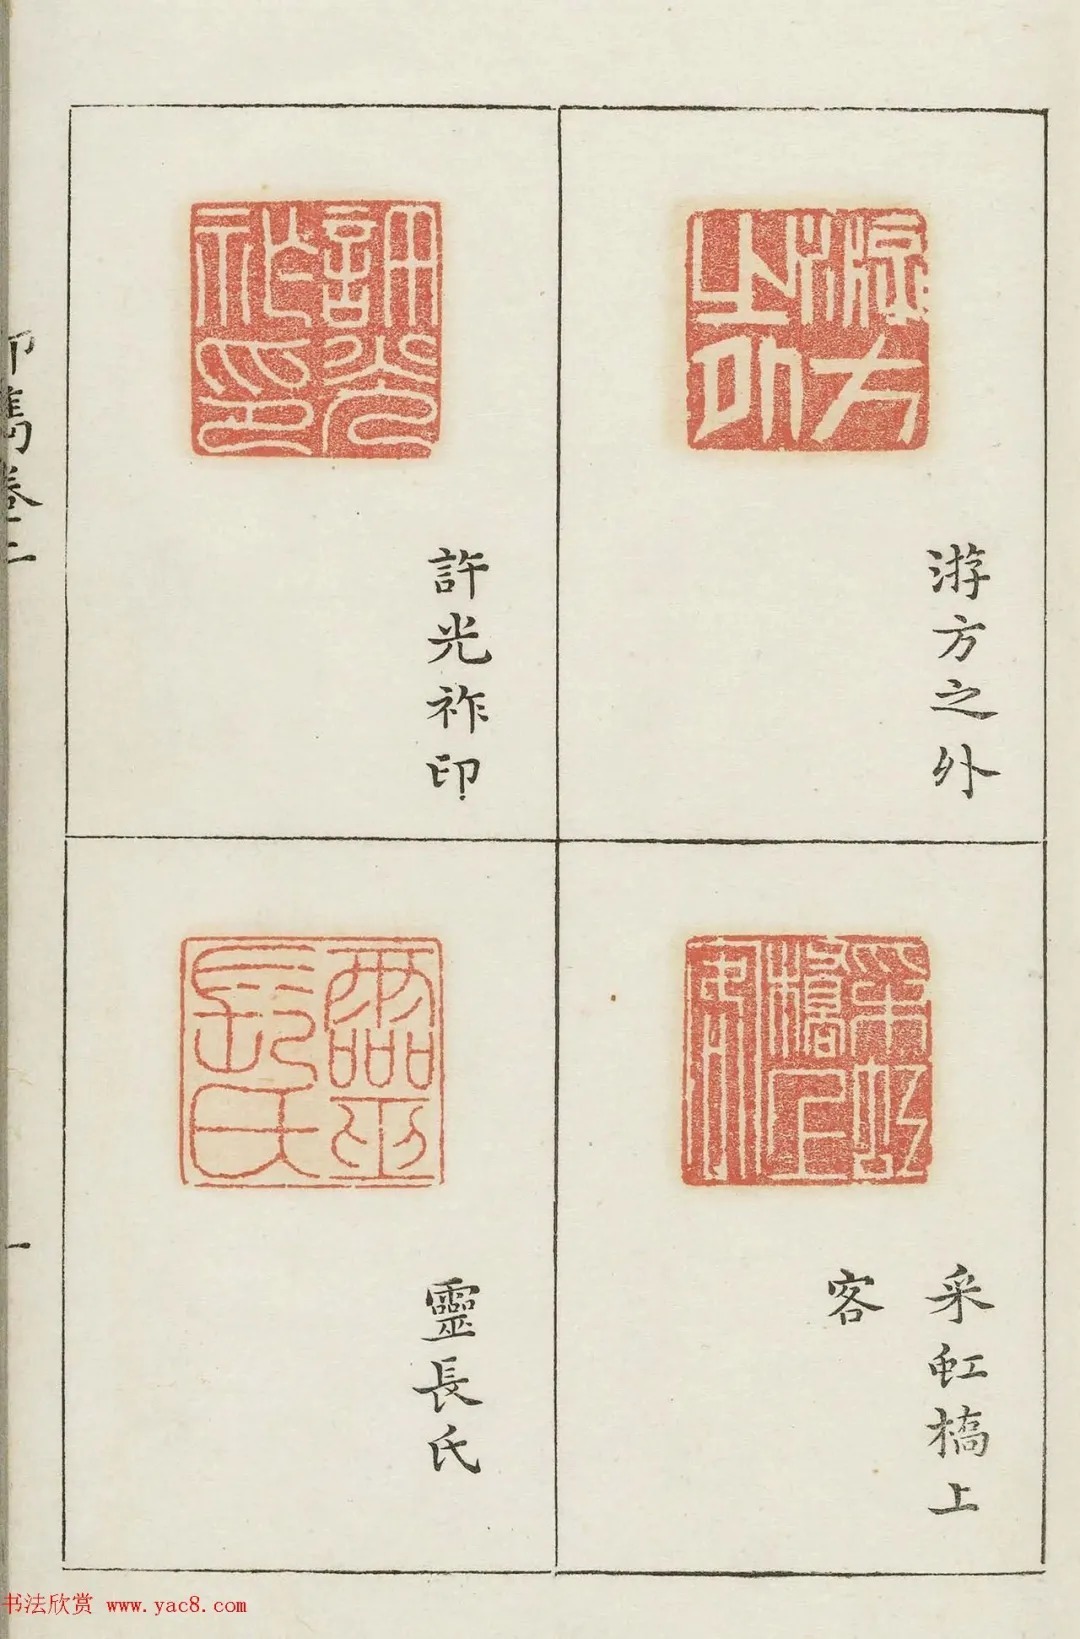 游方之外
許光祚印
采虹橋上
客
靈長氏
印雋卷二
一
书法欣赏 www.yac8.com